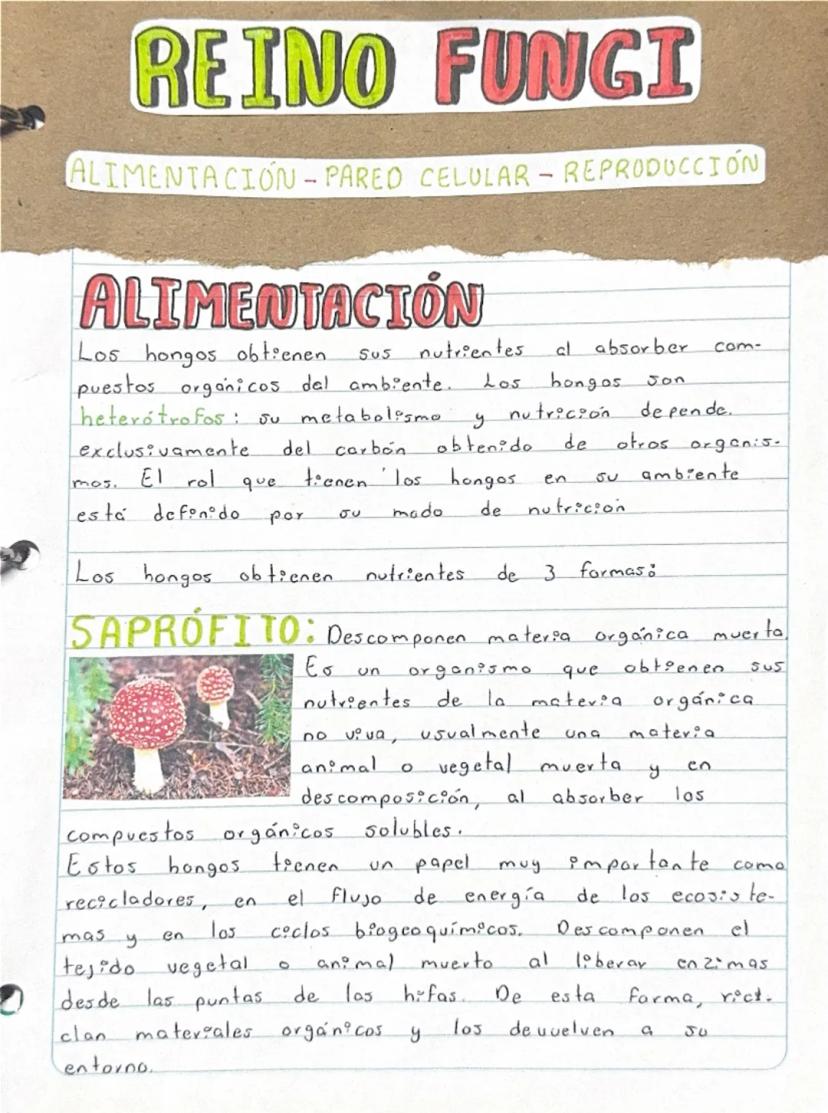 REINO FUNGI
ALIMENTACIÓN - PARED CELULAR - REPRODUCCIÓN
ALIMENTACIÓN
Los hongos obtienen sus nutrientes al absorber com-
puestos orgánicos del ambiente. Los hongos son
heterótrofos: su metabolismo y nutrición depende
exclusivamente del carbón obtenido de otros organis-
mos. El rol que tienen los hongos en su ambiente
está definido por su modo de nutrición
Los hongos obtienen nutrientes de 3 formas:
SAPRÓFITO: Descomponen materia orgánica muerta.
Es un organismo que obtienen sus
nutrientes de la materia orgánica
no viva, usualmente una materia
animal o vegetal muerta y en
descomposición, al absorber los
compuestos orgánicos solubles.
Estos hongos tienen un papel muy importante como
recicladores, en el flujo de energía de los ecosiste-
mas y en los ciclos biogeoquímicos. Descomponen el
tejido vegetal o animal muerto al liberar enzimas
desde las puntas de las hifas. De esta forma, rici-
clan materiales orgánicos y los devuelven a su
entorno.